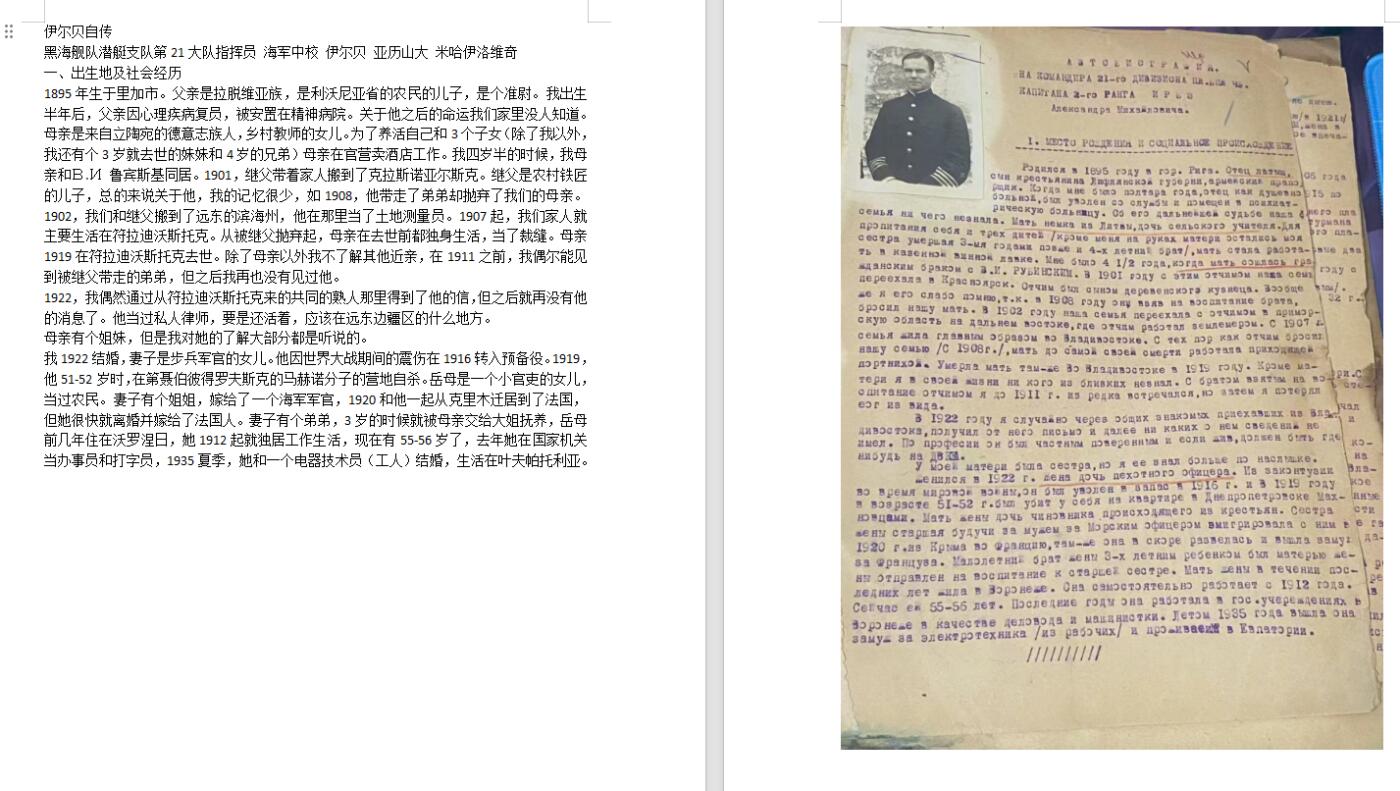 伊尔贝自传
黑海舰队潜艇支队第 21 大队指挥员 海军中校 伊尔贝 亚历山大 米哈伊洛维奇
一、出生地及社会经历
1895 年生于里加市。父亲是拉脱维亚族，是利沃尼亚省的农民的儿子，是个准尉。我出生
半年后，父亲因心理疾病复员，被安置在精神病院。关于他之后的命运我们家里没人知道。
母亲是来自立陶宛的德意志族人，乡村教师的女儿。为了养活自己和 3 个子女（除了我以外，
我还有个 3 岁就去世的妹妹和 4 岁的兄弟）母亲在官营卖酒店工作。我四岁半的时候，我母
亲和В.И 鲁宾斯基同居。1901，继父带着家人搬到了克拉斯诺亚尔斯克。继父是农村铁匠
的儿子，总的来说关于他，我的记忆很少，如 1908，他带走了弟弟却抛弃了我们的母亲。
1902，我们和继父搬到了远东的滨海州，他在那里当了土地测量员。1907 起，我们家人就
主要生活在符拉迪沃斯托克。从被继父抛弃起，母亲在去世前都独身生活，当了裁缝。母亲
1919 在符拉迪沃斯托克去世。除了母亲以外我不了解其他近亲，在 1911 之前，我偶尔能见
到被继父带走的弟弟，但之后我再也没有见过他。
1922，我偶然通过从符拉迪沃斯托克来的共同的熟人那里得到了他的信，但之后就再没有他
的消息了。他当过私人律师，要是还活着，应该在远东边疆区的什么地方。
母亲有个姐妹，但是我对她的了解大部分都是听说的。
我 1922 结婚，妻子是步兵军官的女儿。他因世界大战期间的震伤在 1916 转入预备役。1919，
他 51-52 岁时，在第聂伯彼得罗夫斯克的马赫诺分子的营地自杀。岳母是一个小官吏的女儿，
当过农民。妻子有个姐姐，嫁给了一个海军军官，1920 和他一起从克里木迁居到了法国，
但她很快就离婚并嫁给了法国人。妻子有个弟弟，3 岁的时候就被母亲交给大姐抚养，岳母
前几年住在沃罗涅日，她 1912 起就独居工作生活，现在有 55-56 岁了，去年她在国家机关
当办事员和打字员，1935 夏季，她和一个电器技术员（工人）结婚，生活在叶夫帕托利亚。
АВТОБИОГРАФИЯ.
НА КОМАНДИРА 21-го ДИВИЗИОНА ПЛ.БЛ ЧФ.
КАПИТАНА 2-го РАНГА И Р Б Е
Александра Михайловича.
1. МЕСТО РОЖДЕНИЯ И СОЦИАЛЬНОЕ ПРОИСХОЖДЕНИЕ
Родился в 1895 году в гор. Рига. Отец латыш,
сын крестьянина Лифлянской губерни,армейский прапо
рщик. Когда мне было полтара года,отец как душевно
больной,был уволен со службы и помещен в психиат-
рическую больницу. Об его дальнейшей судьбе наша
семья ни чего незнала. Мать немка из Литвы,дочь сельского учителя.Для
пропитания себя и трех дитей /кроме меня на руках матери остались моя
сестра умершая 3-мя годами позже и 4-х летний брат/,мать стала работа-
ть в казенной винной лавке. Мне было 4 1/2 года,когда мать сошлась гра-
жданским браком с В.И. РУБИНСКИМ. В 1901 году с этим отчимом наша семь
переехала в Красноярск. Отчим был сыном деревенского кузнеца. Вообще
же я его слабо помню,т.к. в 1908 году он взяв на воспитание брата,
бросил нашу мать. В 1902 году наша семья переехала с отчимом в примор-
скую область на дальнем востоке,где отчим работал землемером. С 1907
семья жила главным образом во Владивостоке. С тех пор как отчим бросил
нашу семью /С 1908г./,мать до самой своей смерти работала приходящей
портнихой. Умерла мать там-же Во Владивостоке в 1919 году. Кроме ма-
тери я в своей жизни ни кого из близких незнал. С братом взятым на во-
спитание отчимом я до 1911 г. из редка встречался,но затем я потерял
его из вида.
В 1922 году я случайно через общих знакомых приехавших из Вла-
дивостока,получил от него письмо и далее ни каких о нем сведений не
имел. По професии он был частным поверенным и если жив,должен быть где
нибудь на ДВКА.
У моей матери была сестра,но я ее знал больше по наслышке.
Женился в 1922 г. жена дочь пехотного офицера. Из законтузии
во время мировой войны,он был уволен в запас в 1916 г. и в 1919 году
в возрасте 51-52 г.был убит у себя на квартире в Днепропетровске Мах-
новцами. Мать жены дочь чиновника происходящего из крестьян. Сестра
жены старшая будучи за мужем за Морским офицером эмигрировала с ним в
1920 г.из Крыма во Францию,там-же она в скоре развелась и вышла замуж
за Француза. Малолетний брат жены 3-х летним ребенком был матерью же-
ны отправлен на воспитание к старшей сестре. Мать жены в течении пос-
ледних лет жила в Воронеже. Она самостоятельно работает с 1912 года.
Сейчас ей 55-56 лет. Последние годы она работала в гос.учереждениях в
Воронеже в качестве деловода и машинистки. Летом 1935 года вышла она
замуж за электротехника /из рабочих/ и проживает в Евпатории.
//////////